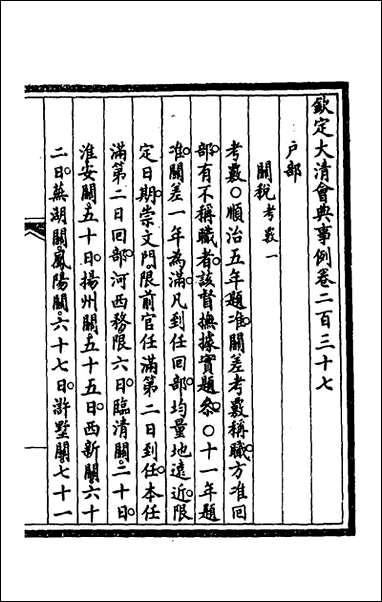 欽定大清會典事例卷二百三十七
户部
關稅考覈一
考覈○順治五年題准關差考覈稱職方准回
部有不稱職者該督撫據實題參○十一年題
准關差一年為滿凡到任回部均量地遠近限
定日期崇文門限前官任滿第二日到任本任
滿第二日回部河西務限六日臨清關二十日
淮安關五十日揚州關五十五日西新關六十
二日蕪湖關鳳陽關六十七日滸墅關七十一